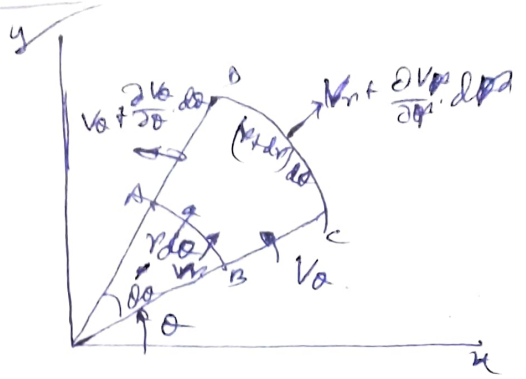 y
D
Vθ + ∂Vθ/∂θ · dθ
Vr + ∂Vr/∂r · dr
(r+dr)dθ
A
rdθ
C
Vr
B
Vθ
dθ
θ
x